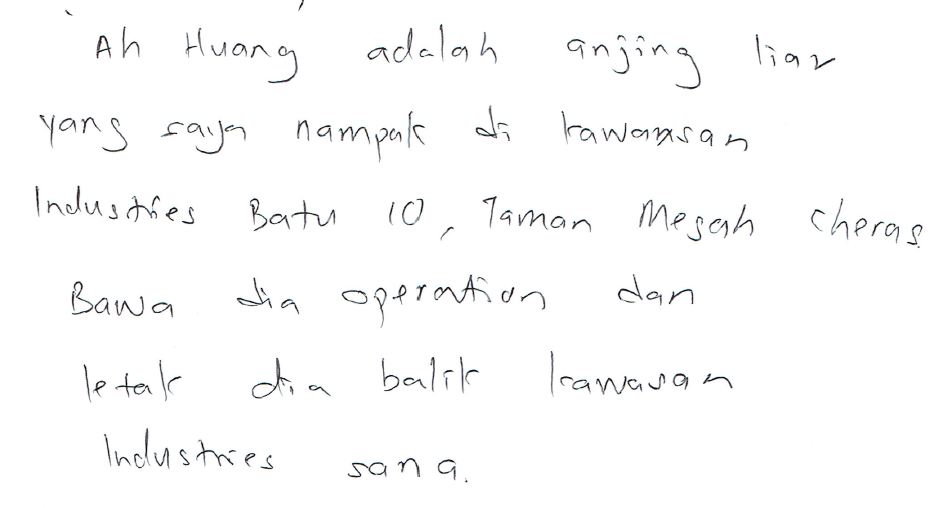 Ah Huang adalah anjing liar
yang saya nampak di kawansan
Industries Batu 10, Taman Megah Cheras.
Bawa dia operation dan
letak dia balik kawasan
Industries sana.